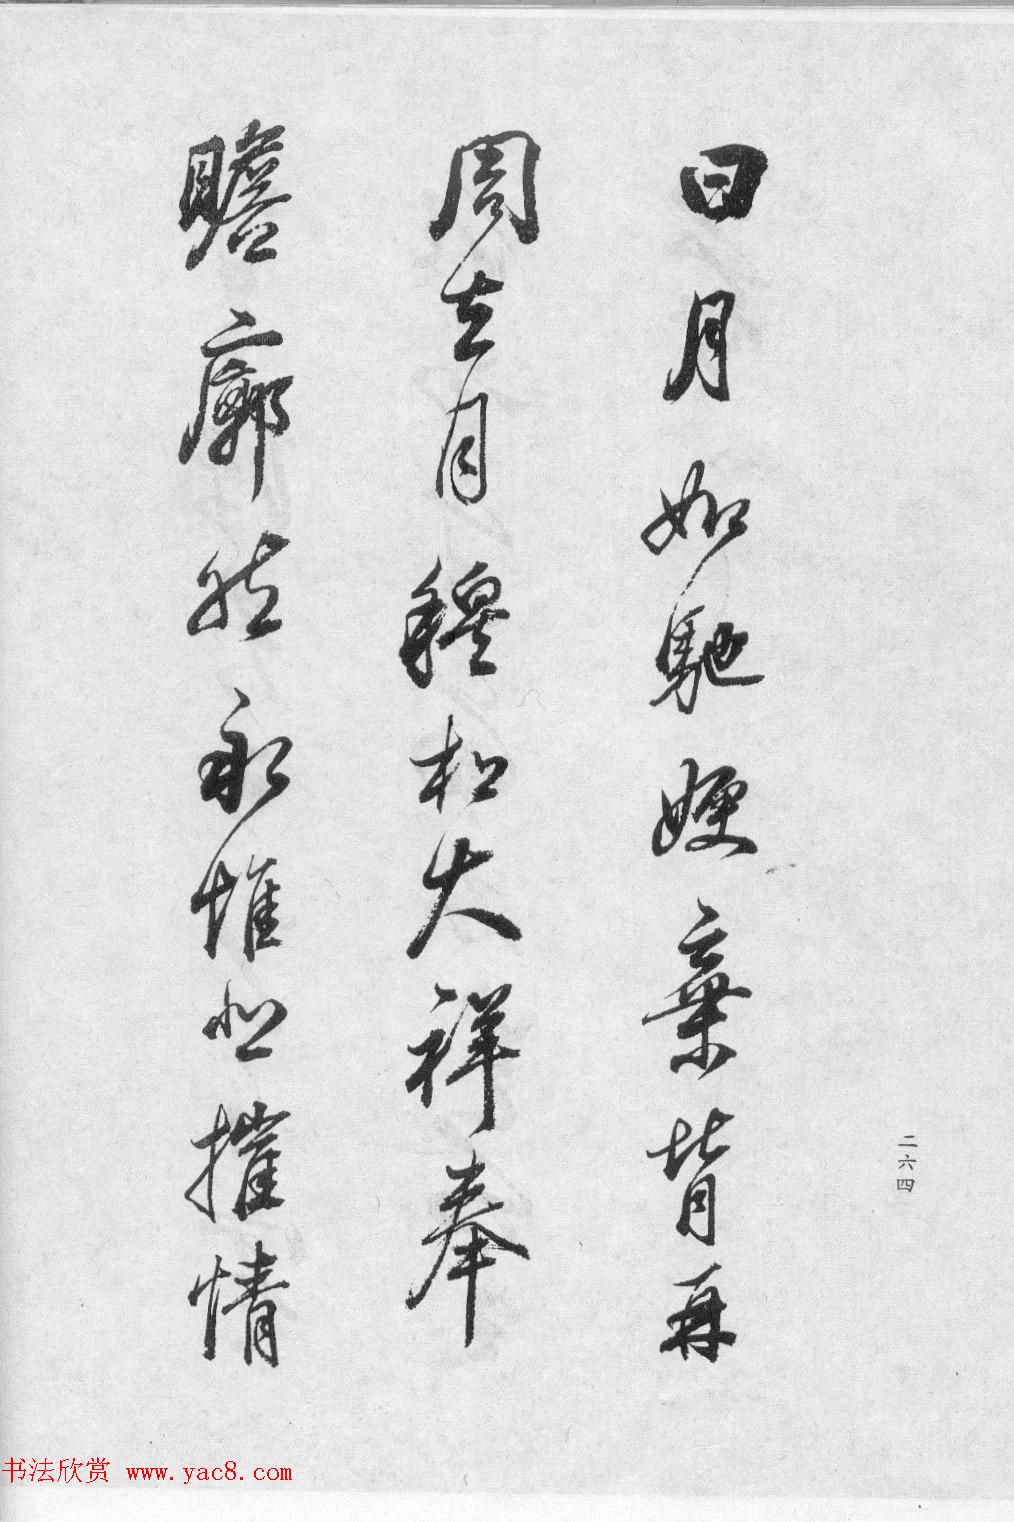 日月如馳嫂棄背再
周去月穆松大祥奉
瞻廓然永惟悲摧情
二六四
书法欣赏 www.yac8.com